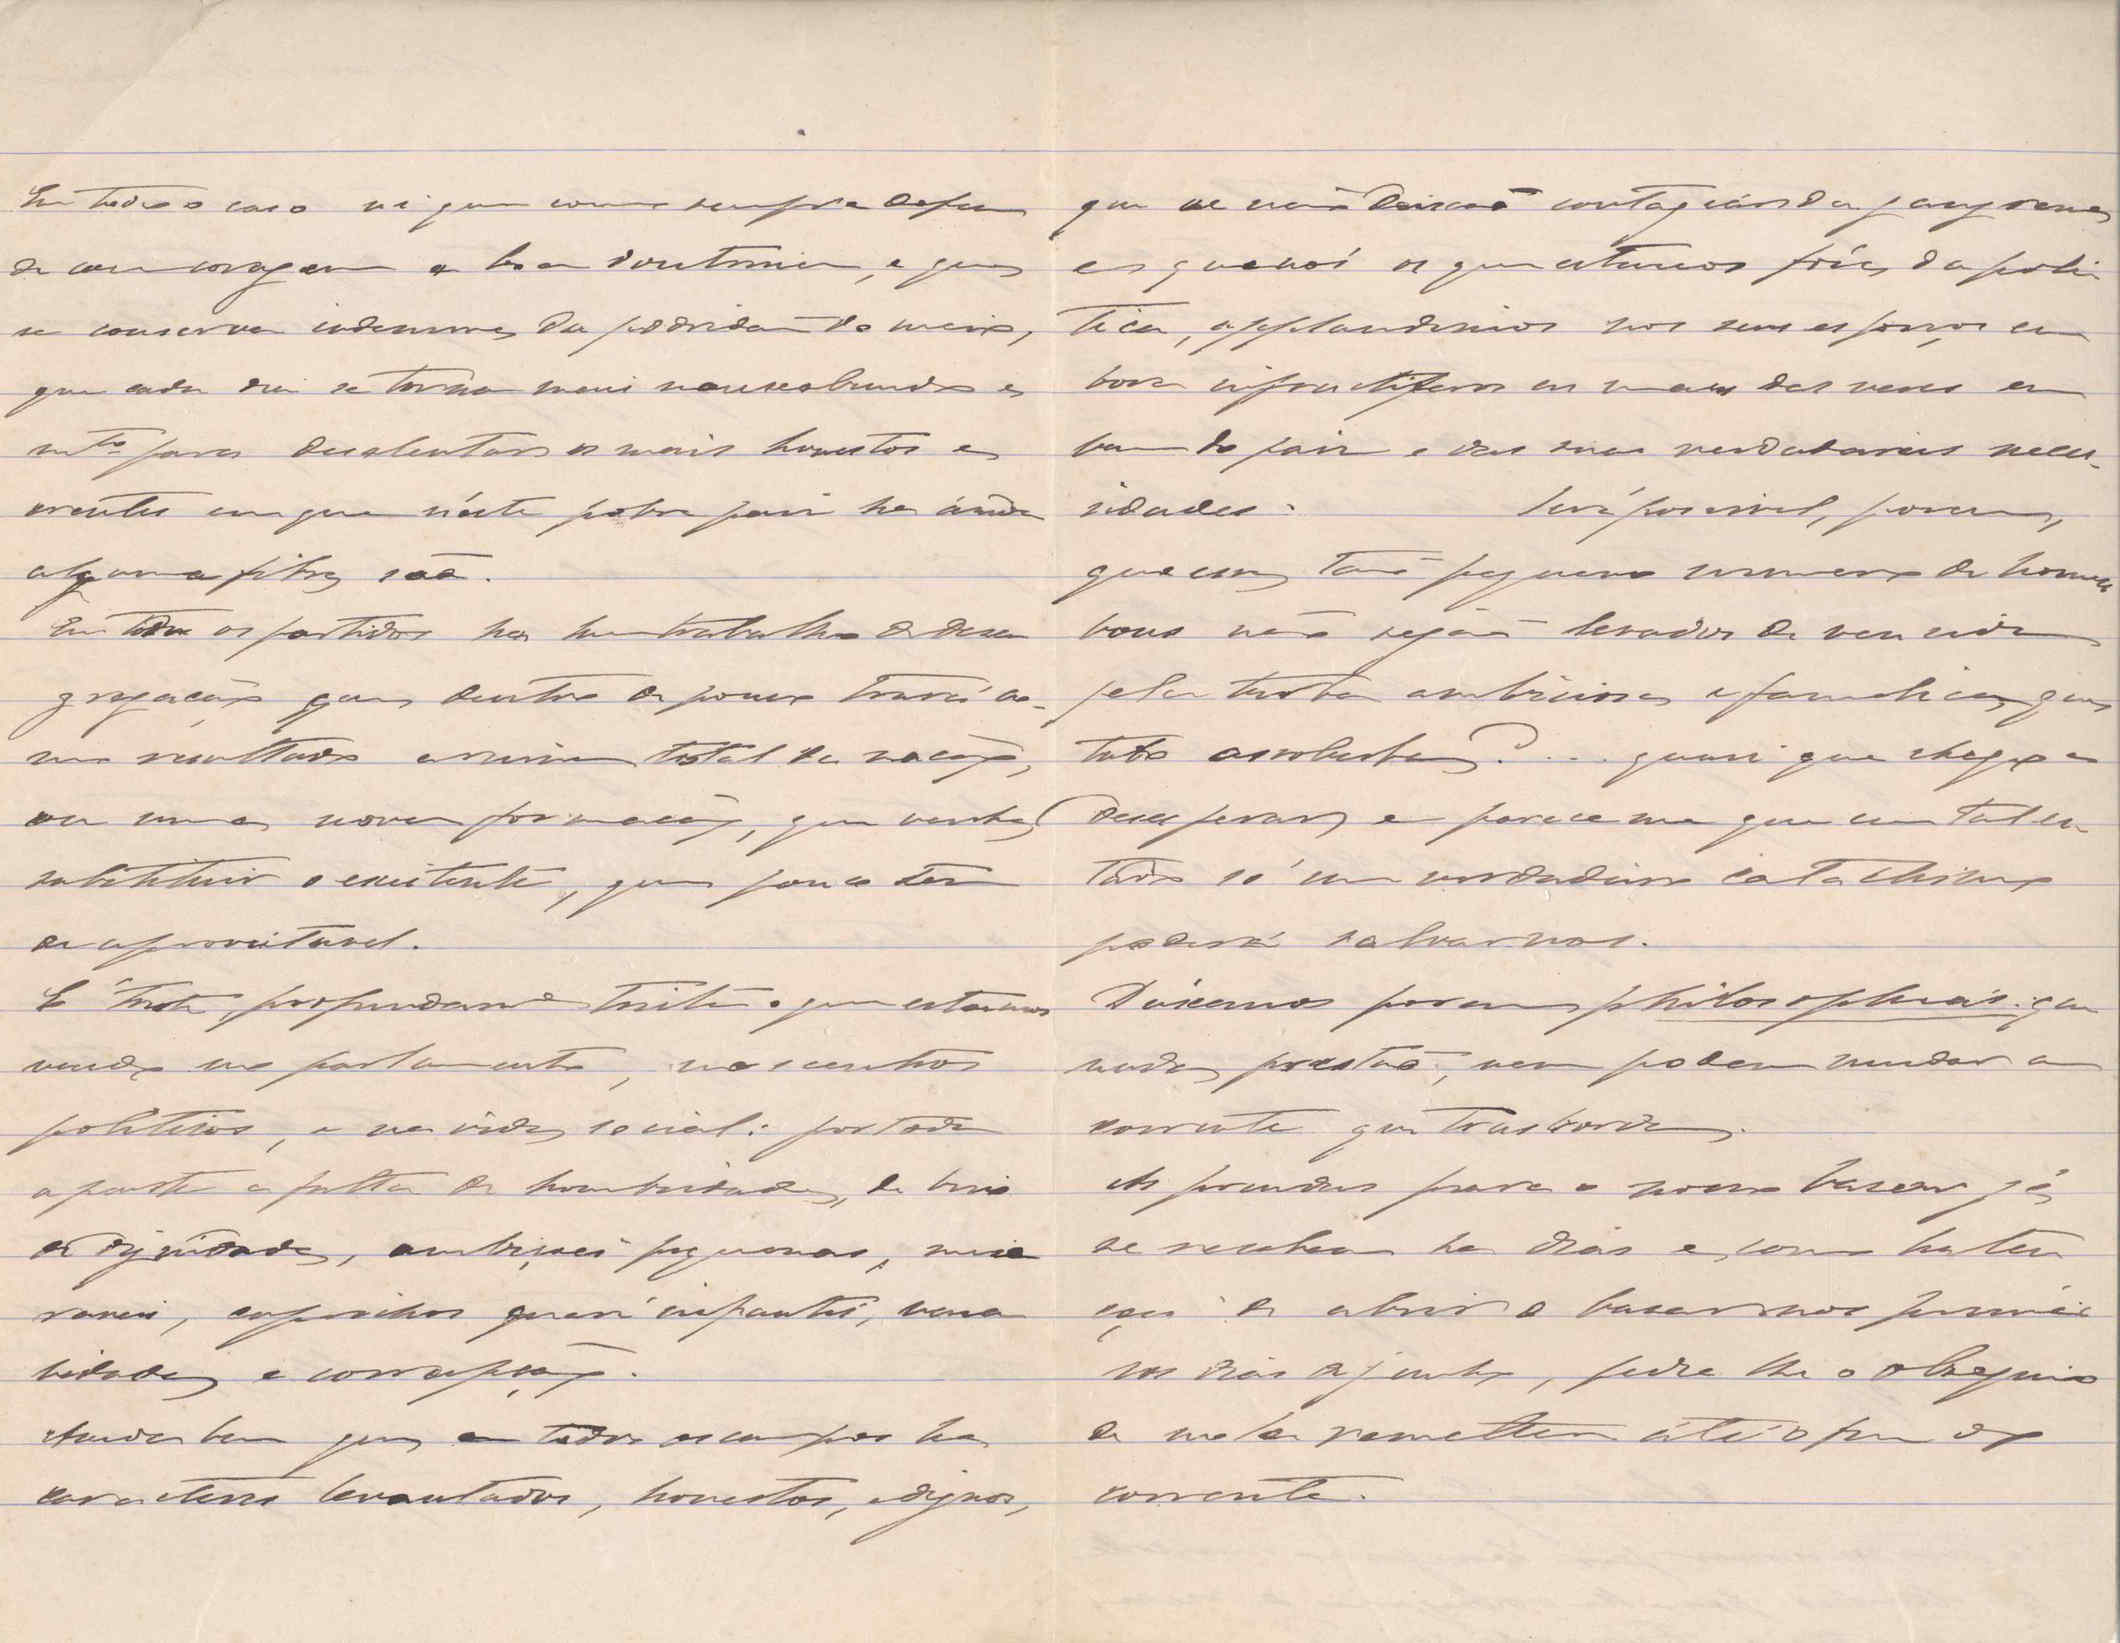 Em todo o caso vi que como sempre defen
de com coragem a boa doutrina, e que
se conserva indemne da podridaõ do meio,
que cada dia se torna mais nauseabundo e
mto para desalentar os mais honestos e
crentes em que n'éste pobre paiz ha áinda
alguma fibra saã.
Em todos os partidos ha hum trabalho de desa
gregaçaõ que dentro de pouco trará co-
mo resultado a ruina total da naçaõ,
ou uma nova formaçaõ, que venha
substituir o existente, que pouco tem
de aproveitavel.
É triste, profundame triste o que estamos
vendo no parlamento, nos centros
politicos, e na vida social: por toda
a parte a falta de hombridade, de brio
de dignidade, ambiçoẽs pequenas, mise
raveis, caprichos quasi infantis, vena
lidade e corrupçaõ.
Ainda bem que em todos os campos ha
caracteres levantados, honestos, e dignos,
que se naõ deixaõ contagiár da gangrena
e a quem nós os que estamos fóra da poli
tica, applaudimos nos seus esforços em
bora infructiferos as mais das vezes em
bem do paiz e das suas verdadeiras neces-
sidades. Será possivel, porem,
que em taõ pequeno numero de homens
bons naõ sejaõ levados de vencida
pela turba ambiciosa e famelica, que
tudo assoberba?.... quasi que chego a
desesperar, e parece me que em tal es
tado só um verdadeiro cataclismo
poderá salvar nos.
Deixemos porem philosophias que
nada prestaõ, nem podem mudar a
corrente que trasborda.
As prendas para o nosso bazar já
se recebem ha dias e, como ha ten
çaõ de abrir o bazar nos primeiros
dias de junho, pedia lhe o obsequio
de mas remetter até o fim do
corrente.